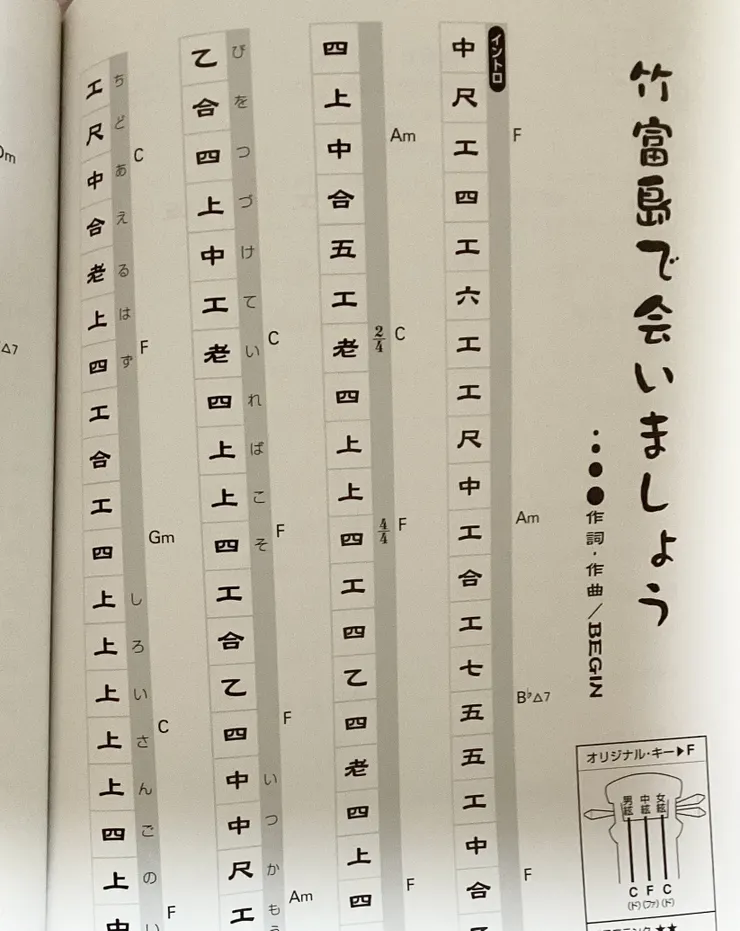 竹富島で会いましょう
作詞・作曲／BEGIN
オリジナル・キー▶F
男絃 中絃 女絃
C F C
(ド) (ファ) (ド)
イントロ
中尺工四工六工工尺中工合工七五五工中合
F Am B♭△7 F
四上中合五工老四上上四工四乙四老四上四
Am 2/4 C 4/4 F F
乙合四上中工老四上上四工合乙四中中尺工
びをつづけていればこそ いつかも
C F F Am
工尺中合老上四工合工四上上上上上四上中
ちどあえるはず しろいさんごの
C F Gm C F
△7